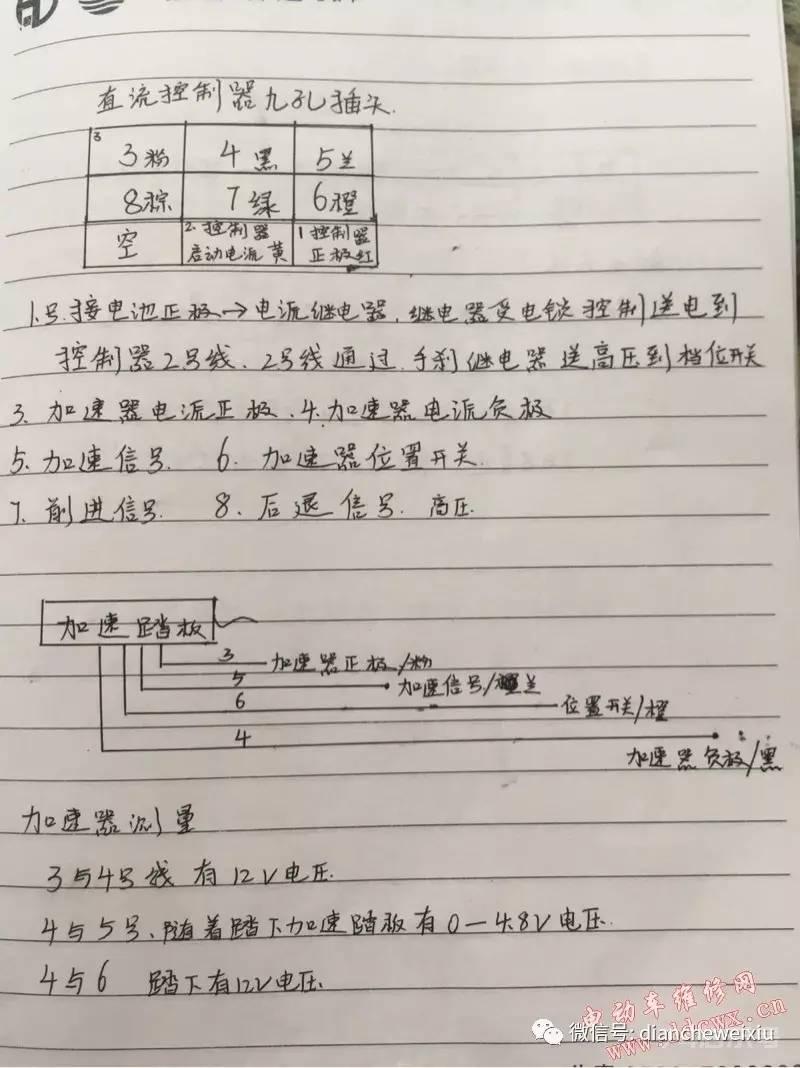 直流控制器九孔插头.
3
3粉 4黑 5兰
8棕 7绿 6橙
空 2.控制器启动电流黄 1控制器正极红
1.号.接电池正极→电流继电器.继电器受电锁控制送电到
控制器2号线.2号线通过.手刹继电器送高压到档位开关
3.加速器电流正极.4.加速器电流负极
5.加速信号. 6.加速器位置开关.
7.前进信号. 8.后退信号.高压.
加速踏板
3 加速器正极/粉
5 加速信号/兰
6 位置开关/橙
4 加速器负极/黑
加速器测量
3与4号线有12V电压.
4与5号、随着踏下加速踏板有0—4.8V电压.
4与6 踏下有12V电压.
电动车维修网
微信号: diancheweixiu